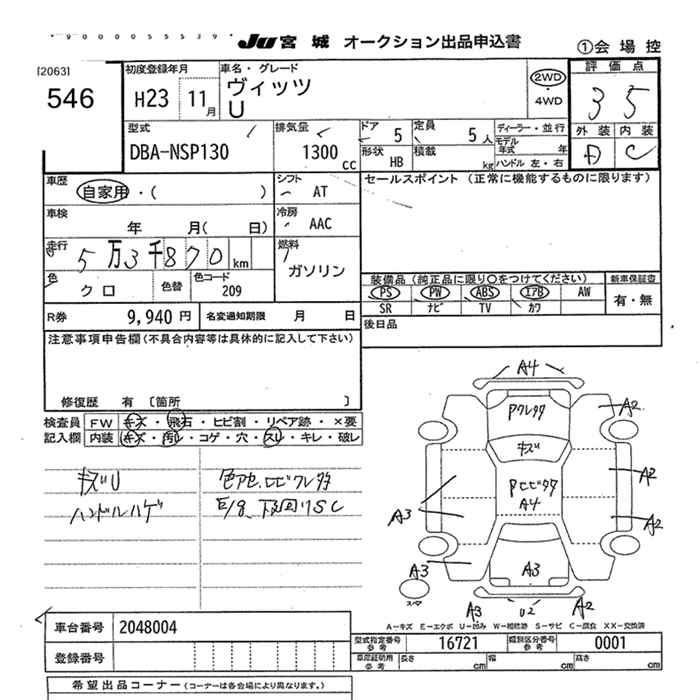 JU 宮城 オークション出品申込書
①会場控
[2063]
546
初度登録年月
H23 11月
車名・グレード
ヴィッツ
U
2WD
・
4WD
評価点
3 5
外装 内装
D C
型式
DBA-NSP130
排気量
1300 CC
ドア 5
定員 5人
ディーラー・並行
モデル年式 年
形状 HB
積載 kg
ハンドル 左・右
車歴
自家用・( )
シフト AT
セールスポイント (正常に機能するものに限ります)
車検
年 月( 日)
冷房 AAC
走行
5万3千870km
燃料
ガソリン
色
クロ
色替
色コード
209
装備品(純正品に限り〇をつけてください)
PS PW ABS エアB AW
SR ナビ TV カワ
新車保証書
有・無
R券 9,940円
名変通知期限 月 日
後日品
注意事項申告欄(不具合内容等は具体的に記入して下さい)
修復歴 有 [箇所 ]
検査員
記入欄
FW キズ・飛石・ヒビ割・リペア跡・×要
内装 キズ・汚レ・コゲ・穴・スレ・キレ・破レ
キズU
ハンドルハゲ
色アセ、ロビクレタタ
E/g、下回りSC
A4
Pクレタタ
A2
キズU
Pヒビタタ
A4
A2
A3
A2
A3
A3
スペア
A3
U2
A2
A-キズ E-エクボ U-凹み W-補修跡 S-サビ C-腐食 XX-交換済
車台番号 2048004
登録番号
型式指定番号
参考
16721
類別区分番号
参考
0001
車庫証明用
参考
長さ cm
幅 cm
高さ cm
希望出品コーナー(コーナーは各会場により異なります。)